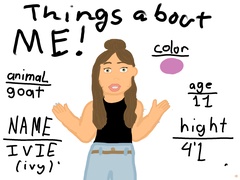 Things about
ME!
color
animal
goat
age
11
NAME
IVIE
(ivy)
hight
4'1